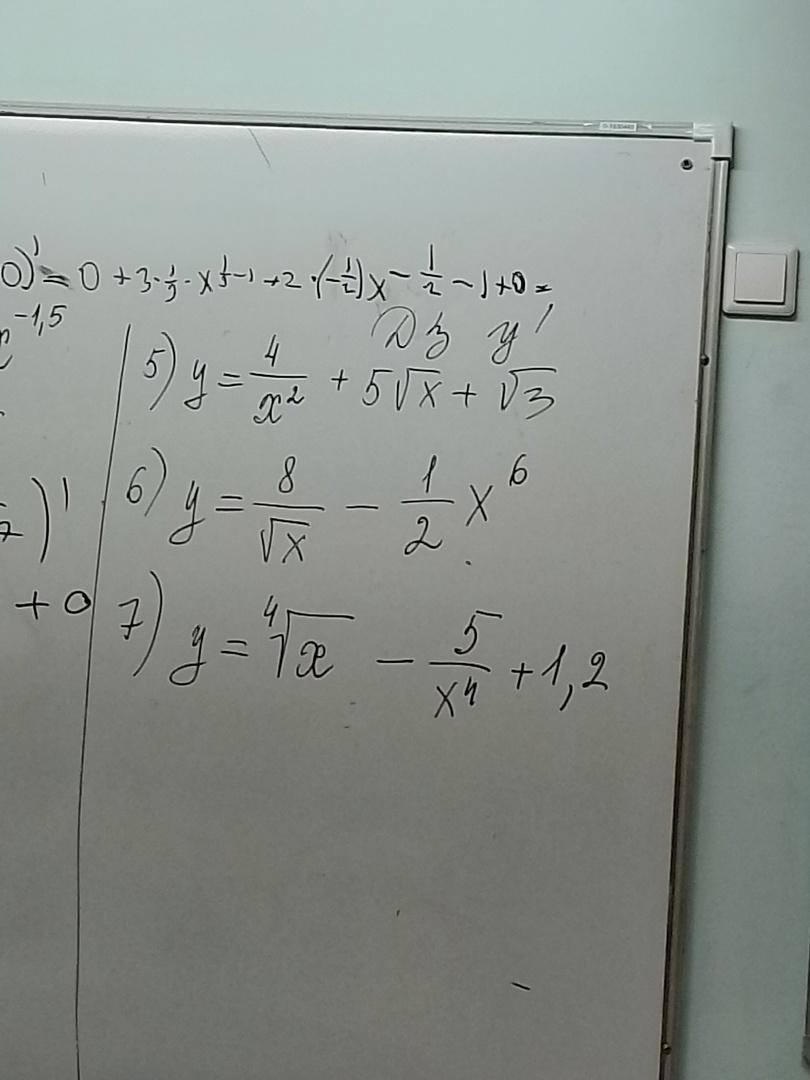 0)' = 0 + 3·1/3·x^(1/3-1) + 2·(-1/2)x^(-1/2-1) + 0 =
-1,5
ДЗ y'
5) y = 4/x² + 5√x + √3
)'
6) y = 8/√x - 1/2 x⁶
+ 0
7) y = ⁴√x - 5/x⁴ + 1,2